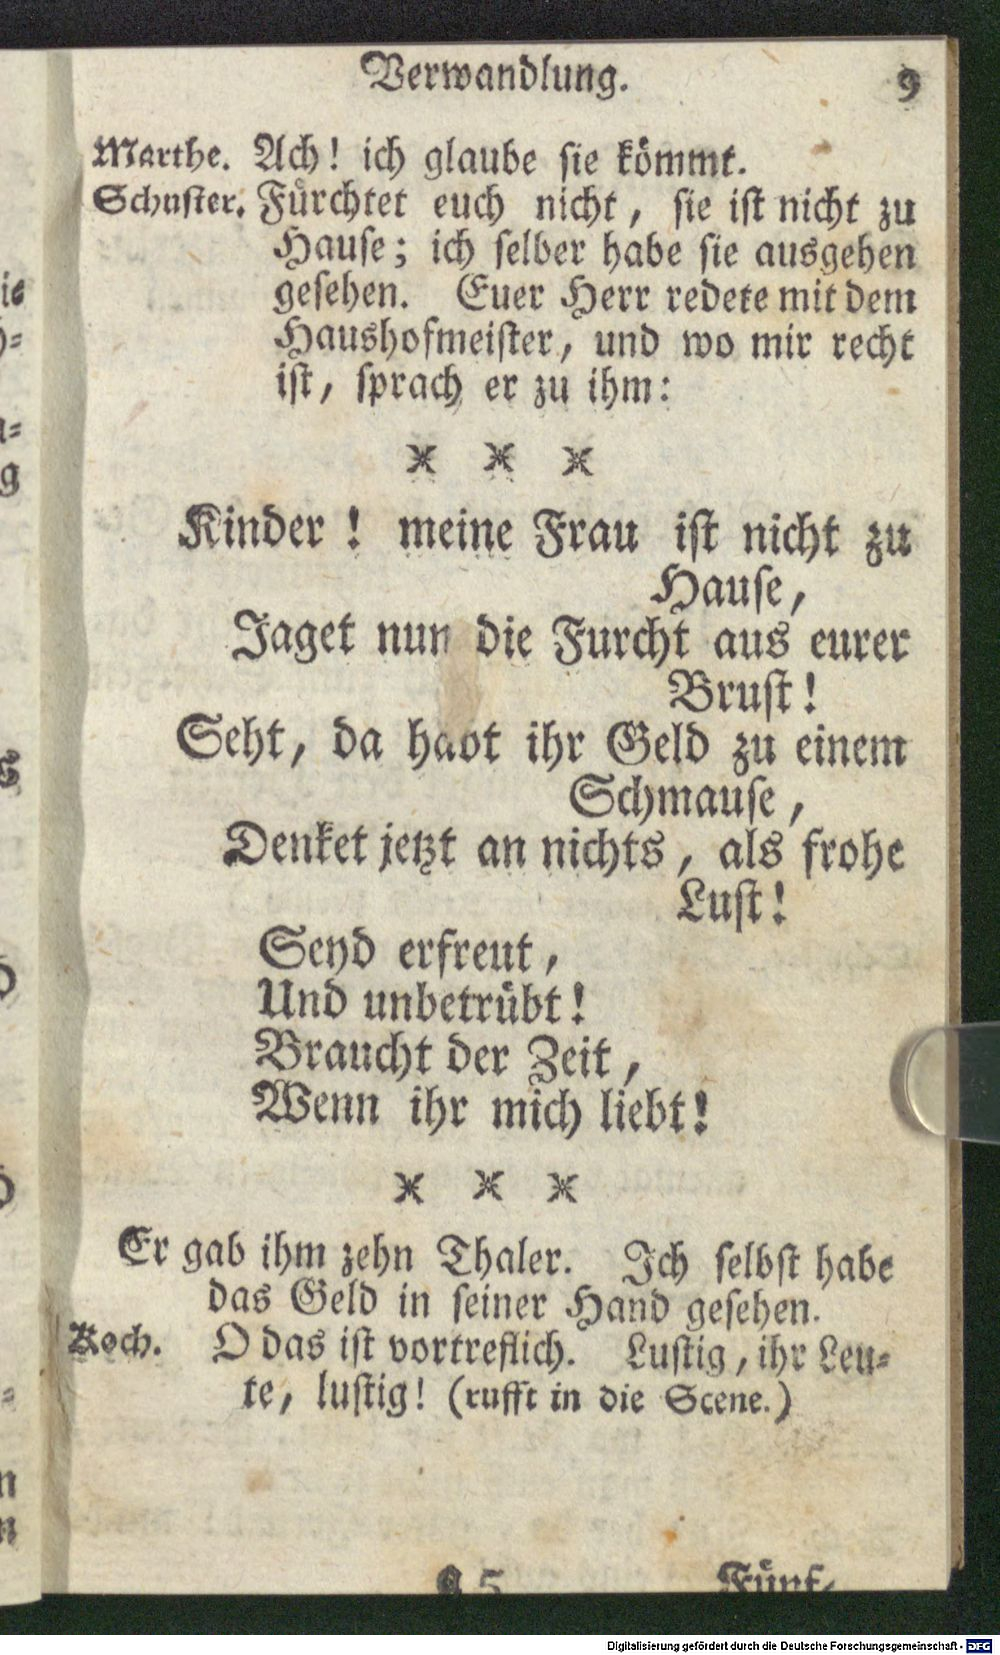 Verwandlung. 9
Marthe. Ach! ich glaube sie kömmt.
Schuster. Fürchtet euch nicht, sie ist nicht zu
Hause; ich selber habe sie ausgehen
gesehen. Euer Herr redete mit dem
Haushofmeister, und wo mir recht
ist, sprach er zu ihm:
* * *
Kinder! meine Frau ist nicht zu
Hause,
Jaget nun die Furcht aus eurer
Brust!
Seht, da habt ihr Geld zu einem
Schmause,
Denket jetzt an nichts, als frohe
Lust!
Seyd erfreut,
Und unbetrübt!
Braucht der Zeit,
Wenn ihr mich liebt!
* * *
Er gab ihm zehn Thaler. Ich selbst habe
das Geld in seiner Hand gesehen.
Koch. O das ist vortreflich. Lustig, ihr Leu-
te, lustig! (rufft in die Scene.)
5 Fünf-
Digitalisierung gefördert durch die Deutsche Forschungsgemeinschaft - DFG